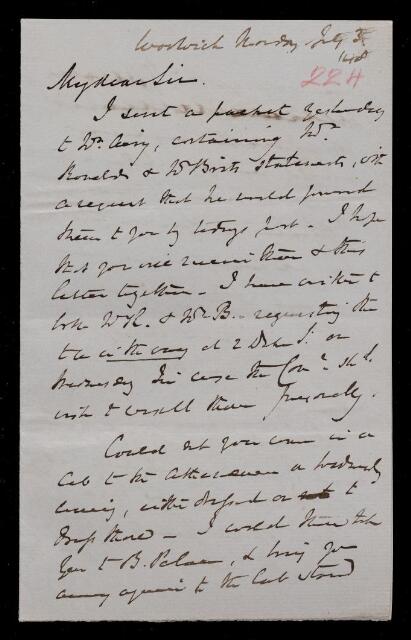 Woolwich Monday July 3
1848
My dear Sir.
224
I sent a packet yesterday
to Mr. Airy, containing Mr.
Ronalds & Mr Birts statements, with
a request that he would forward
them to you by todays post. I hope
that you will receive them & this
letter together. I have written to
both Mr R. & Mr B. requesting them
to be in the way at 2 Duke St. on
Wednesday in case the Com.ee shd.
wish to consult them personally.
Could not you come in a
Cab to the Athenaeum on Wednesday
evening, either dressed or not to
dress there – I could then take
you to B. Palace, & bring you
away again to the Cab Stand